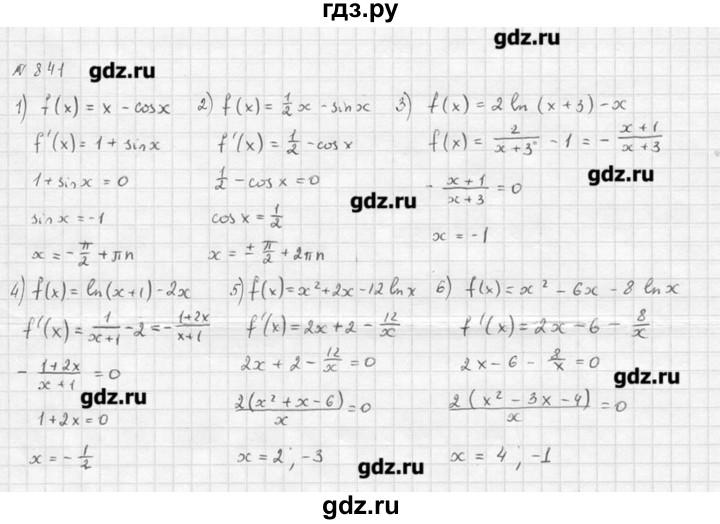 гдз.ру
gdz.ru
№ 841
gdz.ru
1) f(x) = x - cosx
f'(x) = 1 + sinx
1 + sinx = 0
sinx = -1
x = -π/2 + πn
2) f(x) = 1/2 x - sinx
f'(x) = 1/2 - cosx
1/2 - cosx = 0
cosx = 1/2
x = ± π/2 + 2πn
gdz.ru
3) f(x) = 2 ln (x+3) - x
f(x) = 2/(x+3) - 1 = - (x+1)/(x+3)
gdz.ru
- (x+1)/(x+3) = 0
x = -1
4) f(x) = ln(x+1) - 2x
f'(x) = 1/(x+1) - 2 = - (1+2x)/(x+1)
- (1+2x)/(x+1) = 0
gdz.ru
1 + 2x = 0
x = - 1/2
5) f(x) = x² + 2x - 12 ln x
f'(x) = 2x + 2 - 12/x
2x + 2 - 12/x = 0
2(x² + x - 6)/x = 0
x = 2 ; -3
gdz.ru
6) f(x) = x² - 6x - 8 ln x
f'(x) = 2x - 6 - 8/x
2x - 6 - 8/x = 0
gdz.ru
2(x² - 3x - 4)/x = 0
x = 4 ; -1
gdz.ru